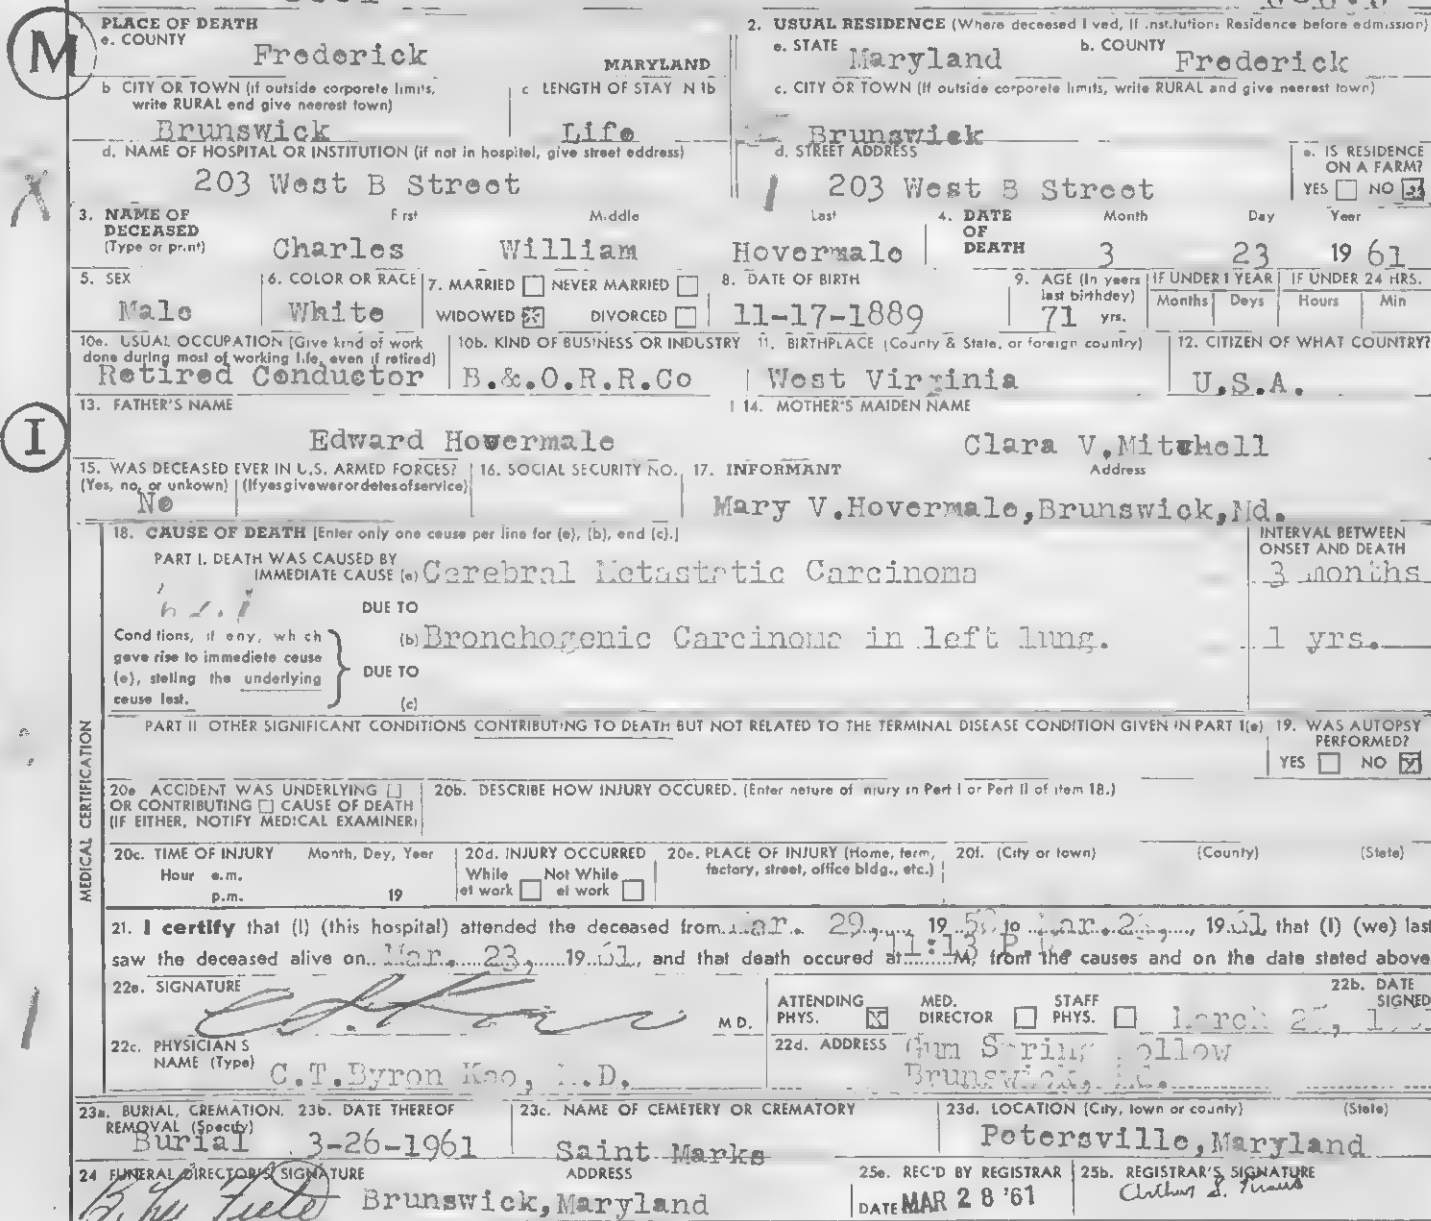 M
1. PLACE OF DEATH
e. COUNTY
Frederick
MARYLAND
2. USUAL RESIDENCE (Where deceesed l ved, If .nst.tution: Residence before edm.ssion)
e. STATE
Maryland
b. COUNTY
Frederick
b CITY OR TOWN (if outside corporete limits, write RURAL end give neerest town)
Brunswick
c LENGTH OF STAY N 1b
Life
c. CITY OR TOWN (If outside corporete limits, write RURAL and give nearest town)
Brunswick
d. NAME OF HOSPITAL OR INSTITUTION (if not in hospitel, give street eddress)
203 West B Street
d. STREET ADDRESS
203 West B Street
e. IS RESIDENCE ON A FARM?
YES NO
3. NAME OF DECEASED (Type or pr.nt)
F rst
Charles
M.ddle
William
Last
Hovermale
4. DATE OF DEATH
Month
3
Day
23
Yeer
19 61
5. SEX
Male
6. COLOR OR RACE
White
7. MARRIED NEVER MARRIED
WIDOWED DIVORCED
8. DATE OF BIRTH
11-17-1889
9. AGE (In yeers last birthdey)
71 yrs.
IF UNDER 1 YEAR
Months Deys
IF UNDER 24 HRS.
Hours Min
10e. USUAL OCCUPATION (Give kind of work done during most of working life, even if retired)
Retired Conductor
10b. KIND OF BUSINESS OR INDUSTRY
B.&.O.R.R.Co
11. BIRTHPLACE (County & State, or foreign country)
West Virginia
12. CITIZEN OF WHAT COUNTRY?
U.S.A.
I
13. FATHER'S NAME
Edward Hovermale
14. MOTHER'S MAIDEN NAME
Clara V.Mitchell
15. WAS DECEASED EVER IN U.S. ARMED FORCES?
(Yes, no, or unkown) (Ifyesgivewerordetesofservice)
No
16. SOCIAL SECURITY NO.
17. INFORMANT
Address
Mary V.Hovermale,Brunswick,Md.
18. CAUSE OF DEATH [Enter only one ceuse per line for (e), (b), end (c).]
INTERVAL BETWEEN ONSET AND DEATH
PART I. DEATH WAS CAUSED BY
IMMEDIATE CAUSE (e) Cerebral Metastatic Carcinoma
3 months
DUE TO
Cond tions, if eny, wh ch geve rise to immediete ceuse (e), steling the underlying ceuse lest.
(b) Bronchogenic Carcinoma in left lung.
1 yrs.
DUE TO
(c)
PART II OTHER SIGNIFICANT CONDITIONS CONTRIBUTING TO DEATH BUT NOT RELATED TO THE TERMINAL DISEASE CONDITION GIVEN IN PART I(e)
19. WAS AUTOPSY PERFORMED?
YES NO
MEDICAL CERTIFICATION
20e ACCIDENT WAS UNDERLYING
OR CONTRIBUTING CAUSE OF DEATH
(IF EITHER, NOTIFY MEDICAL EXAMINER)
20b. DESCRIBE HOW INJURY OCCURED. (Enter neture of njury in Pert I or Pert II of item 18.)
20c. TIME OF INJURY Month, Dey, Yeer
Hour e.m.
p.m. 19
20d. INJURY OCCURRED
While et work Not While et work
20e. PLACE OF INJURY (Home, ferm, fectory, street, office bldg., etc.)
20f. (City or town) (County) (Stete)
21. I certify that (I) (this hospital) attended the deceased from Mar. 29, 19 to Mar. 23, 19 61 that (I) (we) last
saw the deceased alive on Mar. 23, 19 61, and that death occured at 11:13 P.M, from the causes and on the date stated above
22e. SIGNATURE
M D.
ATTENDING PHYS. MED. DIRECTOR STAFF PHYS.
22b. DATE SIGNED
March
22c. PHYSICIAN S NAME (Type)
C.T.Byron Kao, M.D.
22d. ADDRESS
Gum Spring Hollow
Brunswick, Md.
23a. BURIAL, CREMATION, REMOVAL (Specify)
Burial
23b. DATE THEREOF
3-26-1961
23c. NAME OF CEMETERY OR CREMATORY
Saint Marks
23d. LOCATION (City, town or county) (Stete)
Petersville,Maryland
24 FUNERAL DIRECTOR'S SIGNATURE
ADDRESS
Brunswick,Maryland
25e. REC'D BY REGISTRAR
DATE MAR 28 '61
25b. REGISTRAR'S SIGNATURE